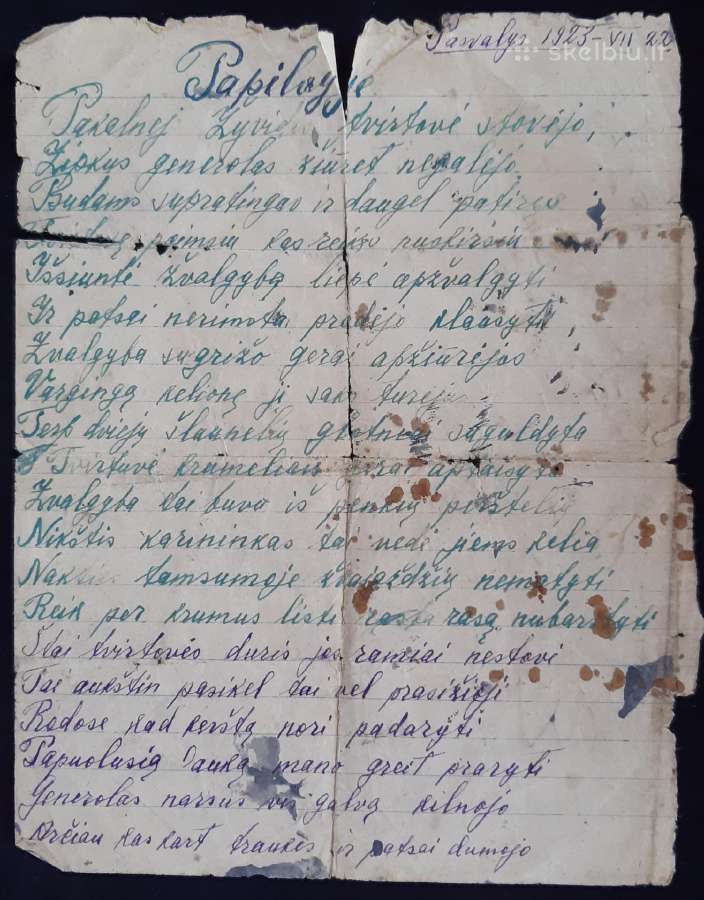 Pasvalys 1923-VII 22
skelbiu.lt
Papilvyje
Pakalnej tvirtovė stovėjo,
Zipkus generolas žiūret negalėjo
Budams supratingas ir daugel patiręs
Išsiuntė žvalgybą liepė apžvalgyti
Ir patsai nerimota pradėjo klausyti,
Zvalgyba sugrižo gerai apžiurėjos
Vargingą kelionę ji sako turėjus
Terp dviejų šlaunelių suguldyta
Tvirtuvė krumeliais aptaisyta
Zvalgyba tai buvo iš penkių pirštelių
Nikštis karininkas tai vedė jiems kelia
Nakties tamsumoje žvaigždžių nematyti
Reik per krumus listi rasą nubarstyti
Štai tvirtovės duris jos ramiai nestovi
Tai aukštin pasikel tai vel prasižioji
Rodose kad kerštą nori padaryti
Papuolusią auką mano greit praryti
Generolas narsus vis galvą kilnojo
Krčiau kaskart traukės ir patsai dumojo